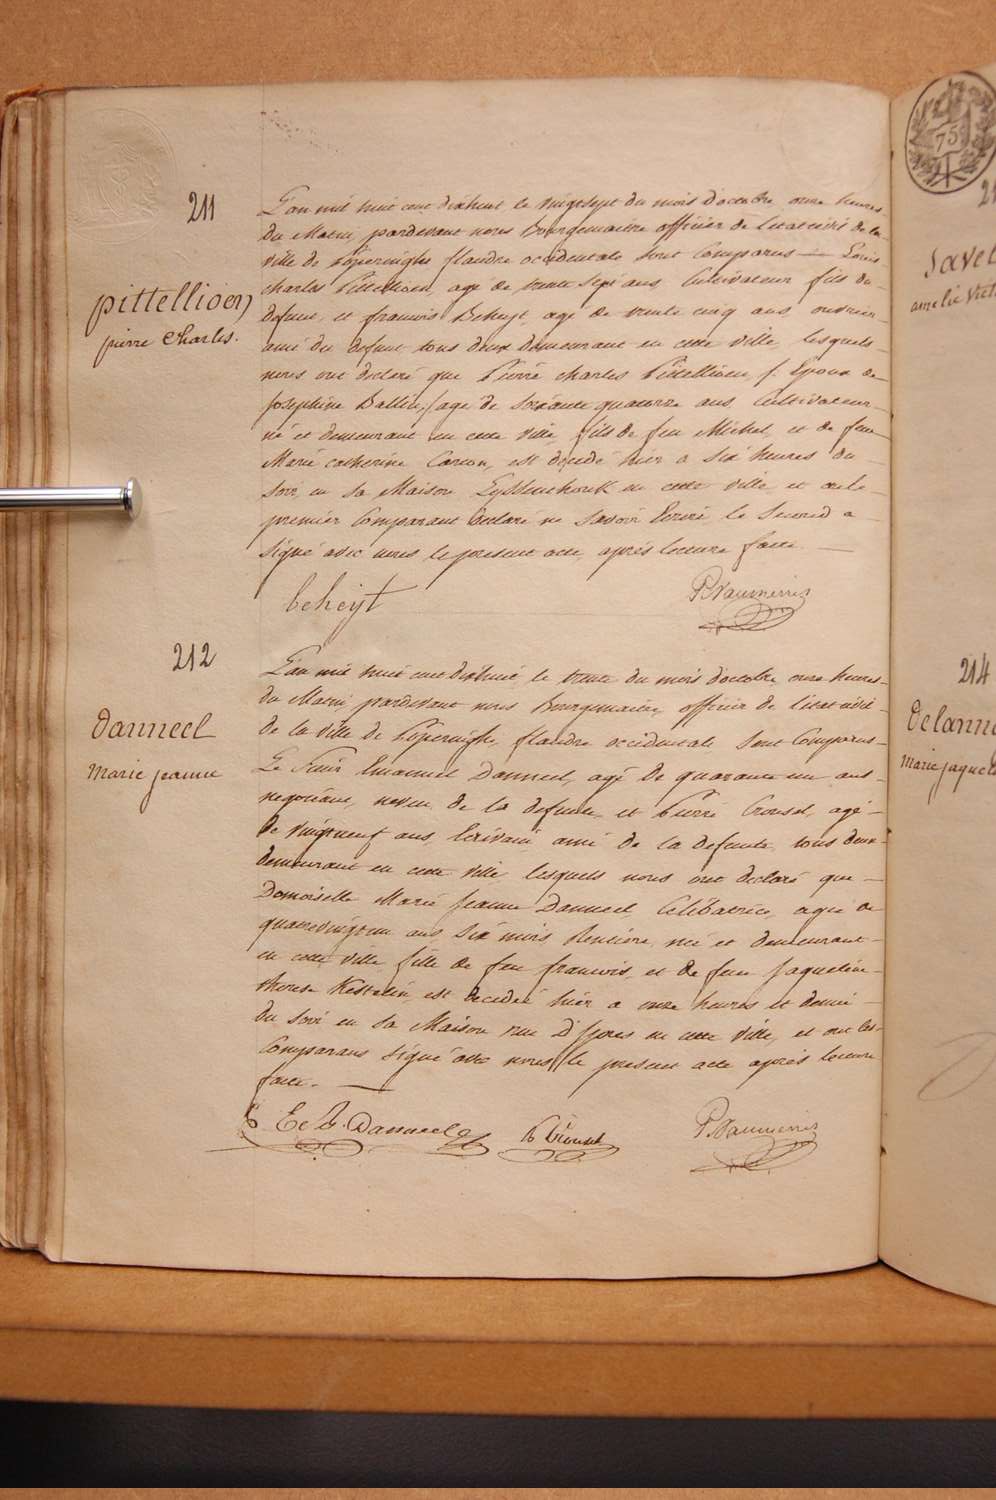 211
pittellioen
pierre Charles.
L'an mil huit cent dixhuit le vingtsept du mois d'octobre onze heures
du Matin pardevant nous Bourgemaitre officier de L'etat civil de la
ville de Poperinghe flandre occidentale sont Comparus — Louis
charles Pittellioen, agé de trente sept ans Cultivateur fils du
defunt et francois Beheyt, agé de trente cinq ans ouvrier
ami du defunt tous deux demeurant en cette ville lesquels
nous ont declaré que Pierre charles Pittellioen, /: Epoux de
josephine Ballin,/ agé de soixante quatorze ans Cultivateur
né et demeurant en cette ville, fils de feu Michel, et de feue
Marie catherine Carron, est décédé hier a six heures du
soir en sa Maison en cette ville et a le
premier Comparant declaré ne savoir Ecrire le Second a
signé avec nous le present acte, après lecture faite. —
beheyt
P. Vanmerris
212
danneel
Marie jeanne
L'an mil huit cent dixhuit le trente du mois d'octobre onze heures
du Matin pardevant nous Bourgemaitre, officier de l'etat civil
de la ville de Poperinghe, flandre occidentale sont Comparus
Le Sieur Emanuel Danneel, agé de quarante un ans
negociant, neveu de la defunte et Pierre Crousel, agé
de vingtneuf ans, Ecrivain ami de la defunte, tous deux
demeurant en cette ville, lesquels nous ont declaré que —
Demoiselle Marie jeanne Danneel Celibatrice, agée de
quatrevingtun ans six mois Rentiere, née et demeurant
en cette ville fille de feu francois, et de feue jaqueline
therese Kestelin, est decedée hier a onze heures et demie
du soir en sa Maison rue D'Ipres en cette ville, et ont les
Comparans signé avec nous le present acte après lecture
faite. —
E: Danneel
P Crousel
P. Vanmerris
75
amelie
214
Delanno
Marie jaque